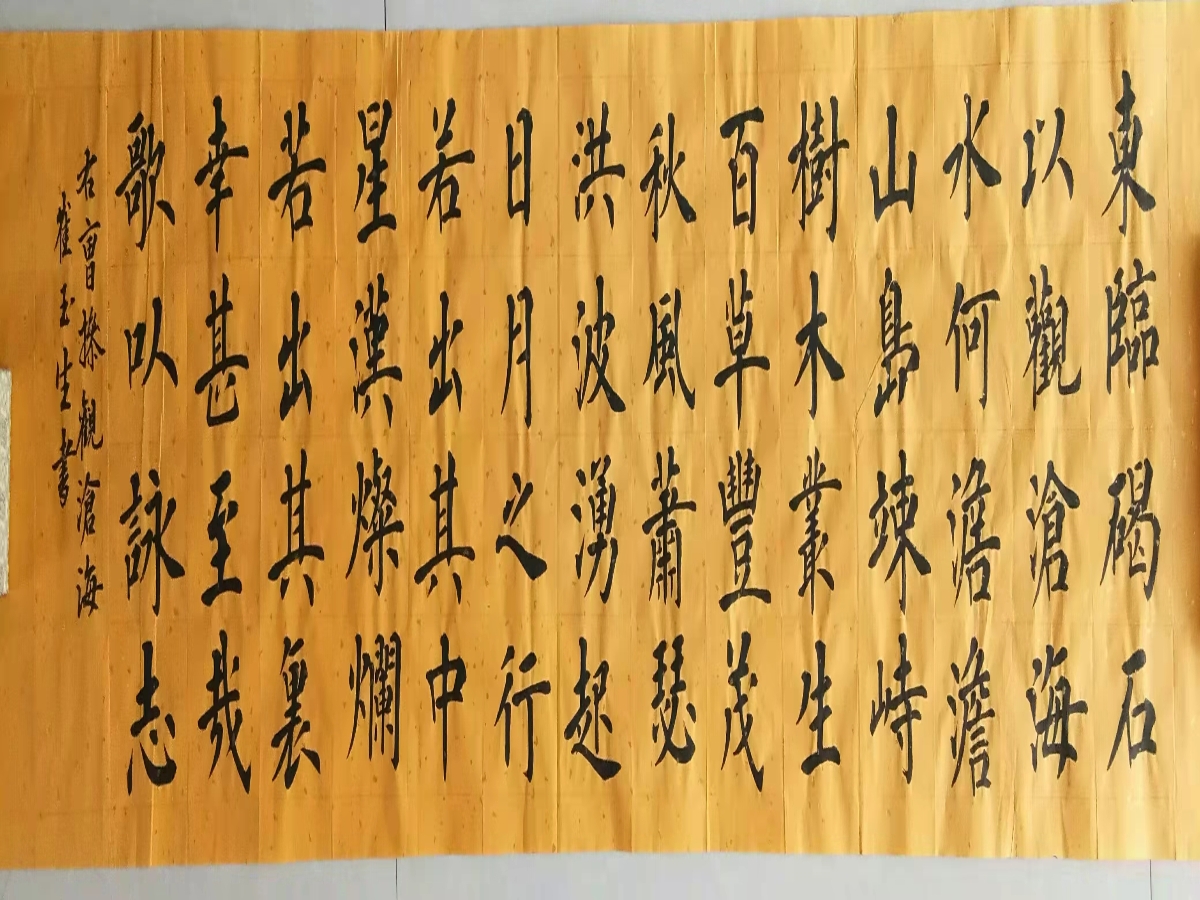 東臨碣石
以觀滄海
水何澹澹
山島竦峙
樹木叢生
百草豐茂
秋風蕭瑟
洪波湧起
日月之行
若出其中
星漢燦爛
若出其裏
幸甚至哉
歌以詠志
右曹操觀滄海
崔玉生書